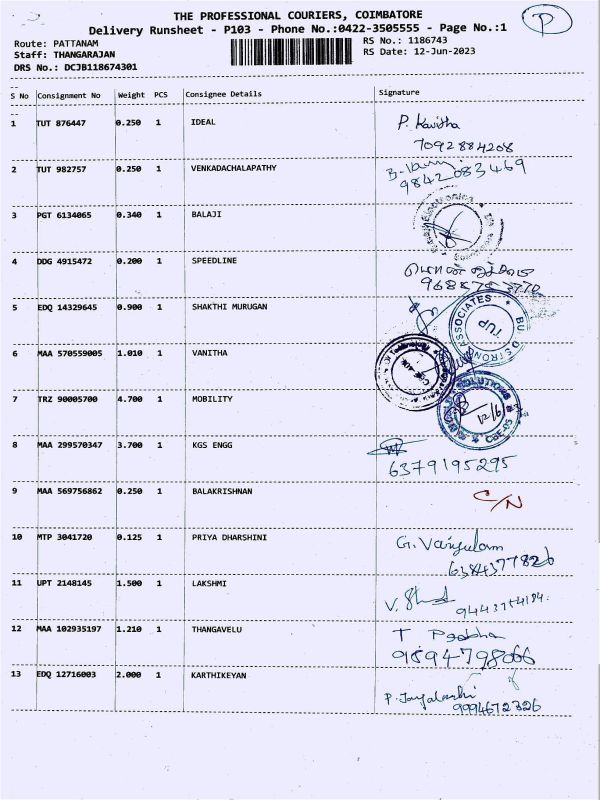 THE PROFESSIONAL COURIERS, COIMBATORE
P
Delivery Runsheet - P103 - Phone No.:0422-3505555 - Page No.:1
Route: PATTANAM
RS No.: 1186743
Staff: THANGARAJAN
RS Date: 12-Jun-2023
DRS No.: DCJB118674301
S No Consignment No Weight PCS Consignee Details Signature
1 TUT 876447 0.250 1 IDEAL P. Kavitha
7092884208
2 TUT 982757 0.250 1 VENKADACHALAPATHY
9842083469
3 PGT 6134065 0.340 1 BALAJI
4 DDG 4915472 0.200 1 SPEEDLINE
5 EDQ 14329645 0.900 1 SHAKTHI MURUGAN
ASSOCIATES
TUP
6 MAA 570559005 1.010 1 VANITHA
7 TRZ 90005700 4.700 1 MOBILITY
SOLUTIONS
12/6
CBE-05
8 MAA 299570347 3.700 1 KGS ENGG
6379195295
9 MAA 569756862 0.250 1 BALAKRISHNAN C/N
10 MTP 3041720 0.125 1 PRIYA DHARSHINI
6384377826
11 UPT 2148145 1.500 1 LAKSHMI
12 MAA 102935197 1.210 1 THANGAVELU T Prabha
13 EDQ 12716003 2.000 1 KARTHIKEYAN
9994672326